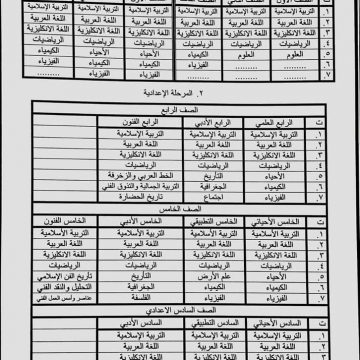 ت الصف الأول الصف الثاني
١. التربية الإسلامية التربية الإسلامية التربية الإسلامية التربية الإسلامية التربية الإسلامية
٢. اللغة العربية اللغة العربية اللغة العربية اللغة العربية اللغة العربية
٣. اللغة الانكليزية اللغة الانكليزية اللغة الانكليزية اللغة الانكليزية اللغة الانكليزية
٤. الرياضيات الرياضيات الرياضيات الرياضيات الرياضيات
٥. العلوم العلوم الأحياء الأحياء الكيمياء
٦. ........ ........ الكيمياء الكيمياء الفيزياء
٧. ........ ........ الفيزياء الفيزياء ........
٢. المرحلة الإعدادية
الصف الرابع
ت الرابع العلمي الرابع الأدبي الرابع الفنون
١. التربية الإسلامية التربية الإسلامية التربية الإسلامية
٢. اللغة العربية اللغة العربية اللغة العربية
٣. اللغة الانكليزية اللغة الانكليزية اللغة الانكليزية
٤. الرياضيات الرياضيات الرياضيات
٥. الأحياء التأريخ الخط العربي والزخرفة
٦. الكيمياء الجغرافية التربية الجمالية والتذوق الفني
٧. الفيزياء اجتماع تاريخ الحضارة
الصف الخامس
ت الخامس الأحيائي الخامس التطبيقي الخامس الأدبي الخامس الفنون
١. التربية الأسلامية التربية الأسلامية التربية الأسلامية التربية الأسلامية
٢. اللغة العربية اللغة العربية اللغة العربية اللغة العربية
٣. اللغة الانكليزية اللغة الانكليزية اللغة الانكليزية اللغة الانكليزية
٤. الرياضيات الرياضيات الرياضيات الرياضيات
٥. الأحياء علم الأرض التأريخ تأريخ الفن الإسلامي
٦. الكيمياء الكيمياء الجغرافية التحليل والنقد الفني
٧. الفيزياء الفيزياء الفلسفة عناصر وأسس العمل الفني
الصف السادس الاعدادي
ت السادس الأحيائي السادس التطبيقي السادس الأدبي
١. التربية الإسلامية التربية الإسلامية التربية الإسلامية
٢. اللغة العربية اللغة العربية اللغة العربية
٣. اللغة الانكليزية اللغة الانكليزية اللغة الانكليزية